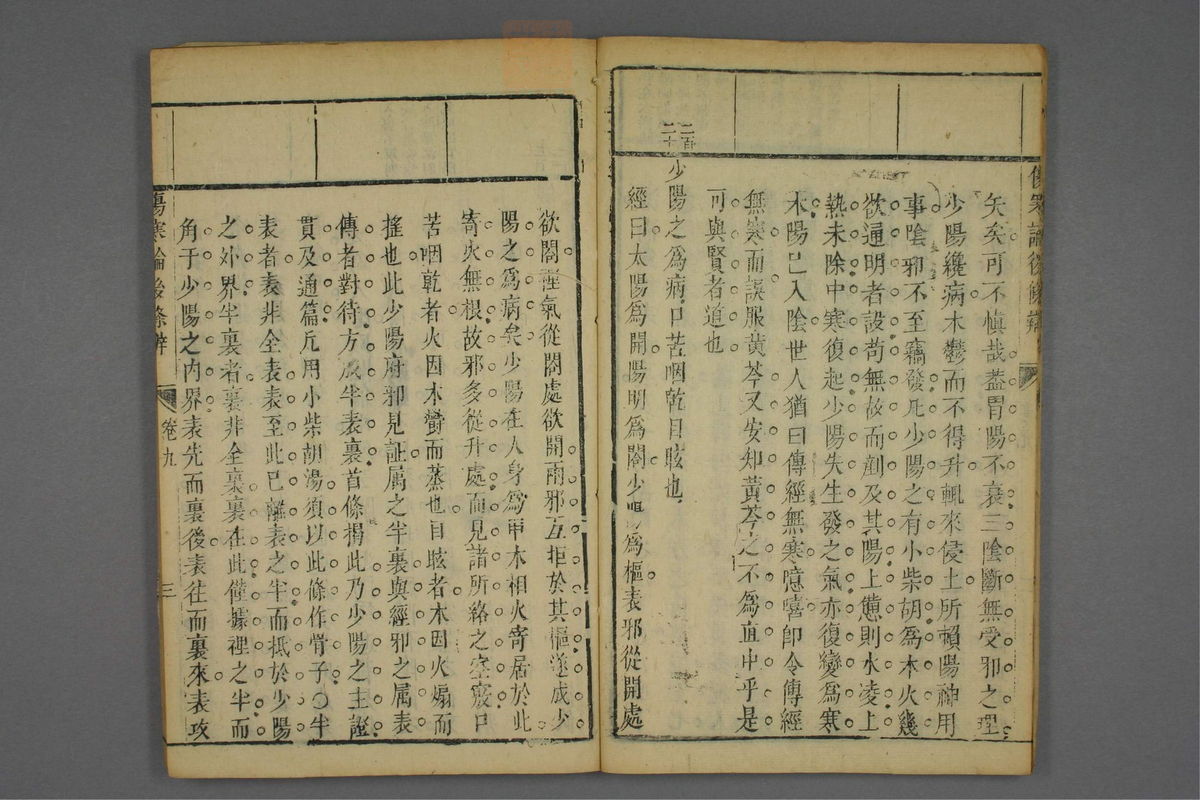 傷寒論後條辨
矣矣可不慎哉蓋胃陽不衰三陰斷無受邪之理
少陽纔病木鬱而不得升輒來侵土所賴陽神用
事陰邪不至竊發凡少陽之有小柴胡為木火幾
欲通明者設苟無故而剷及其陽上憊則水凌上
熱未除中寒復起少陽失生發之氣亦復變為寒
木陽已入陰世人猶曰傳經無寒噫嘻卽令傳經
無寒而誤服黃芩又安知黃芩之不為直中乎是
可與賢者道也
二百二十
少陽之為病口苦咽乾目眩也
經曰太陽為開陽明為闔少陽為樞表邪從開處
欲闔裡氣從闔處欲開兩邪互拒於其樞遂成少
陽之為病矣少陽在人身為甲木相火寄居於此
寄火無根故邪多從升處而見諸所絡之空竅口
苦咽乾者火因木鬱而蒸也目眩者木因火煽而
搖也此少陽府邪見証属之半裏與經邪之属表
傳者對待方成半表裏首條揭此乃少陽之主證
貫及通篇凡用小柴胡湯須以此條作骨子〇半
表者表非全表表至此已離表之半而抵於少陽
之外界半裏者裏非全裏裏在此僅據裡之半而
角于少陽之內界表先而裏後表往而裏來表攻
傷寒論後條辨
卷九
三